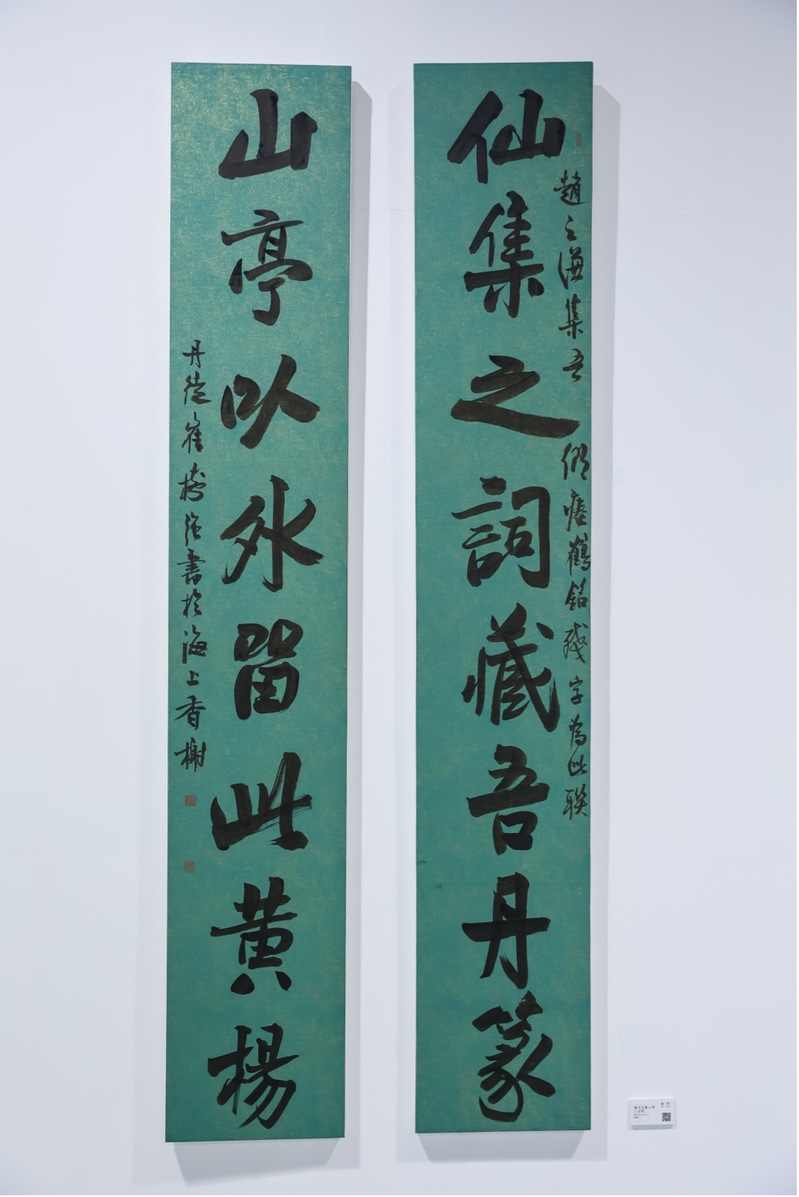 仙集之詞藏吾丹篆
趙之謙集吾
瘞鶴銘殘字為此联
山亭以外留此黃楊
丹徒崔樹強書於海上香榭